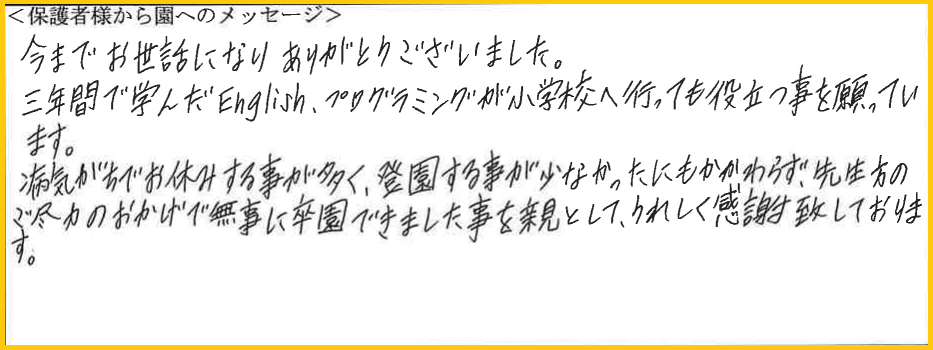 ＜保護者様から園へのメッセージ＞
今までお世話になりありがとうございました。
三年間で学んだEnglish、プログラミングが小学校へ行っても役立つ事を願ってい
ます。
病気がちでお休みする事が多く、登園する事が少なかったにもかかわらず、先生方の
ご尽力のおかげで無事に卒園できました事を親として、うれしく感謝致しておりま
す。